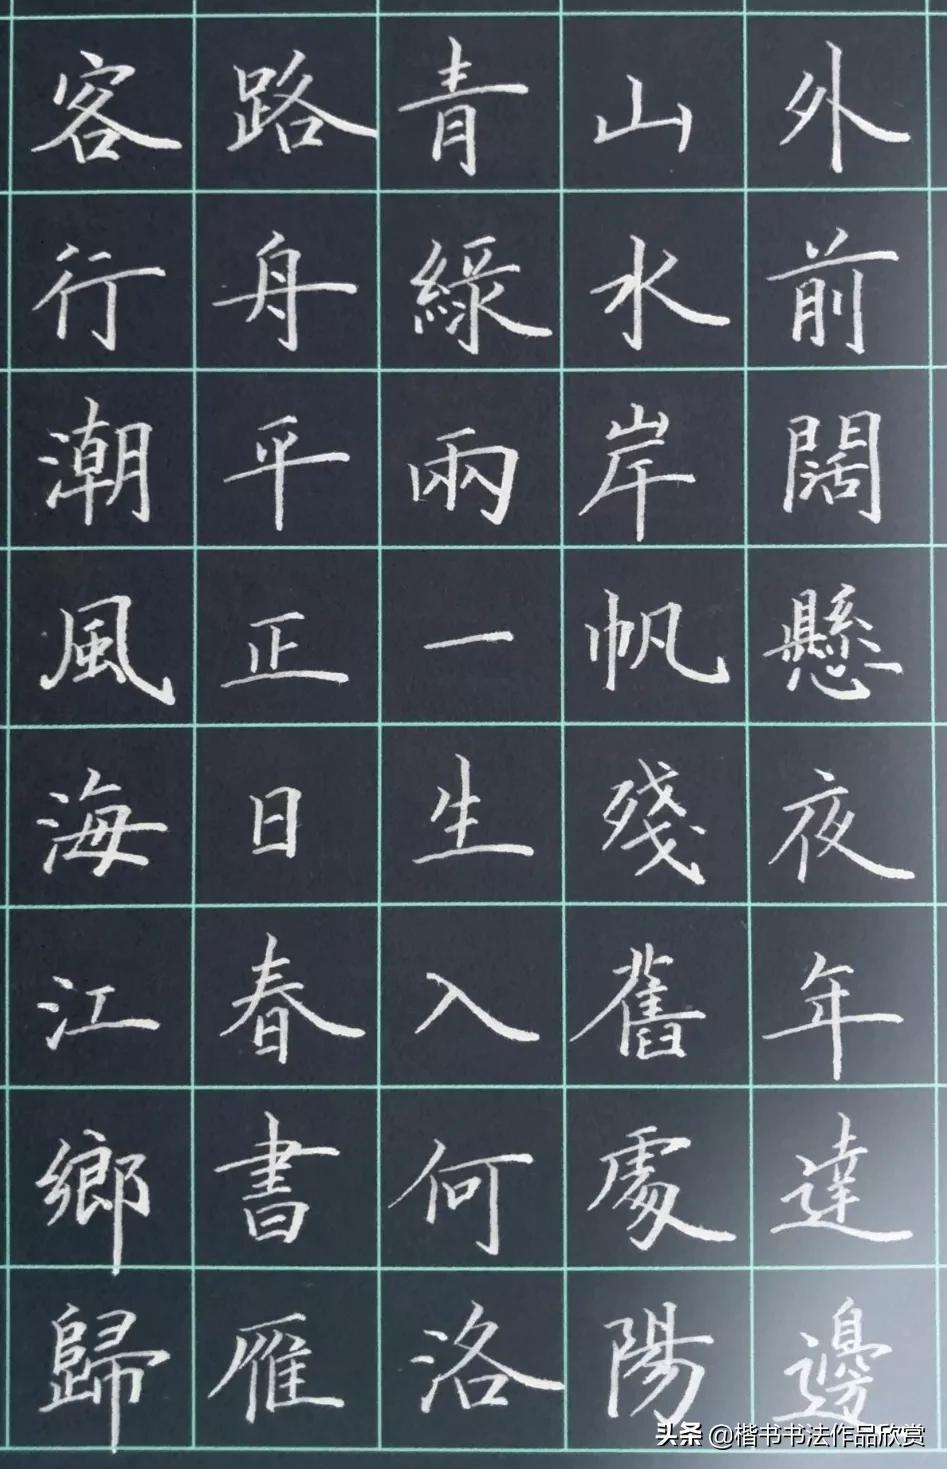 客路青山外
行舟綠水前
潮平兩岸闊
風正一帆懸
海日生殘夜
江春入舊年
鄉書何處達
歸雁洛陽邊
头条 @楷书书法作品欣赏